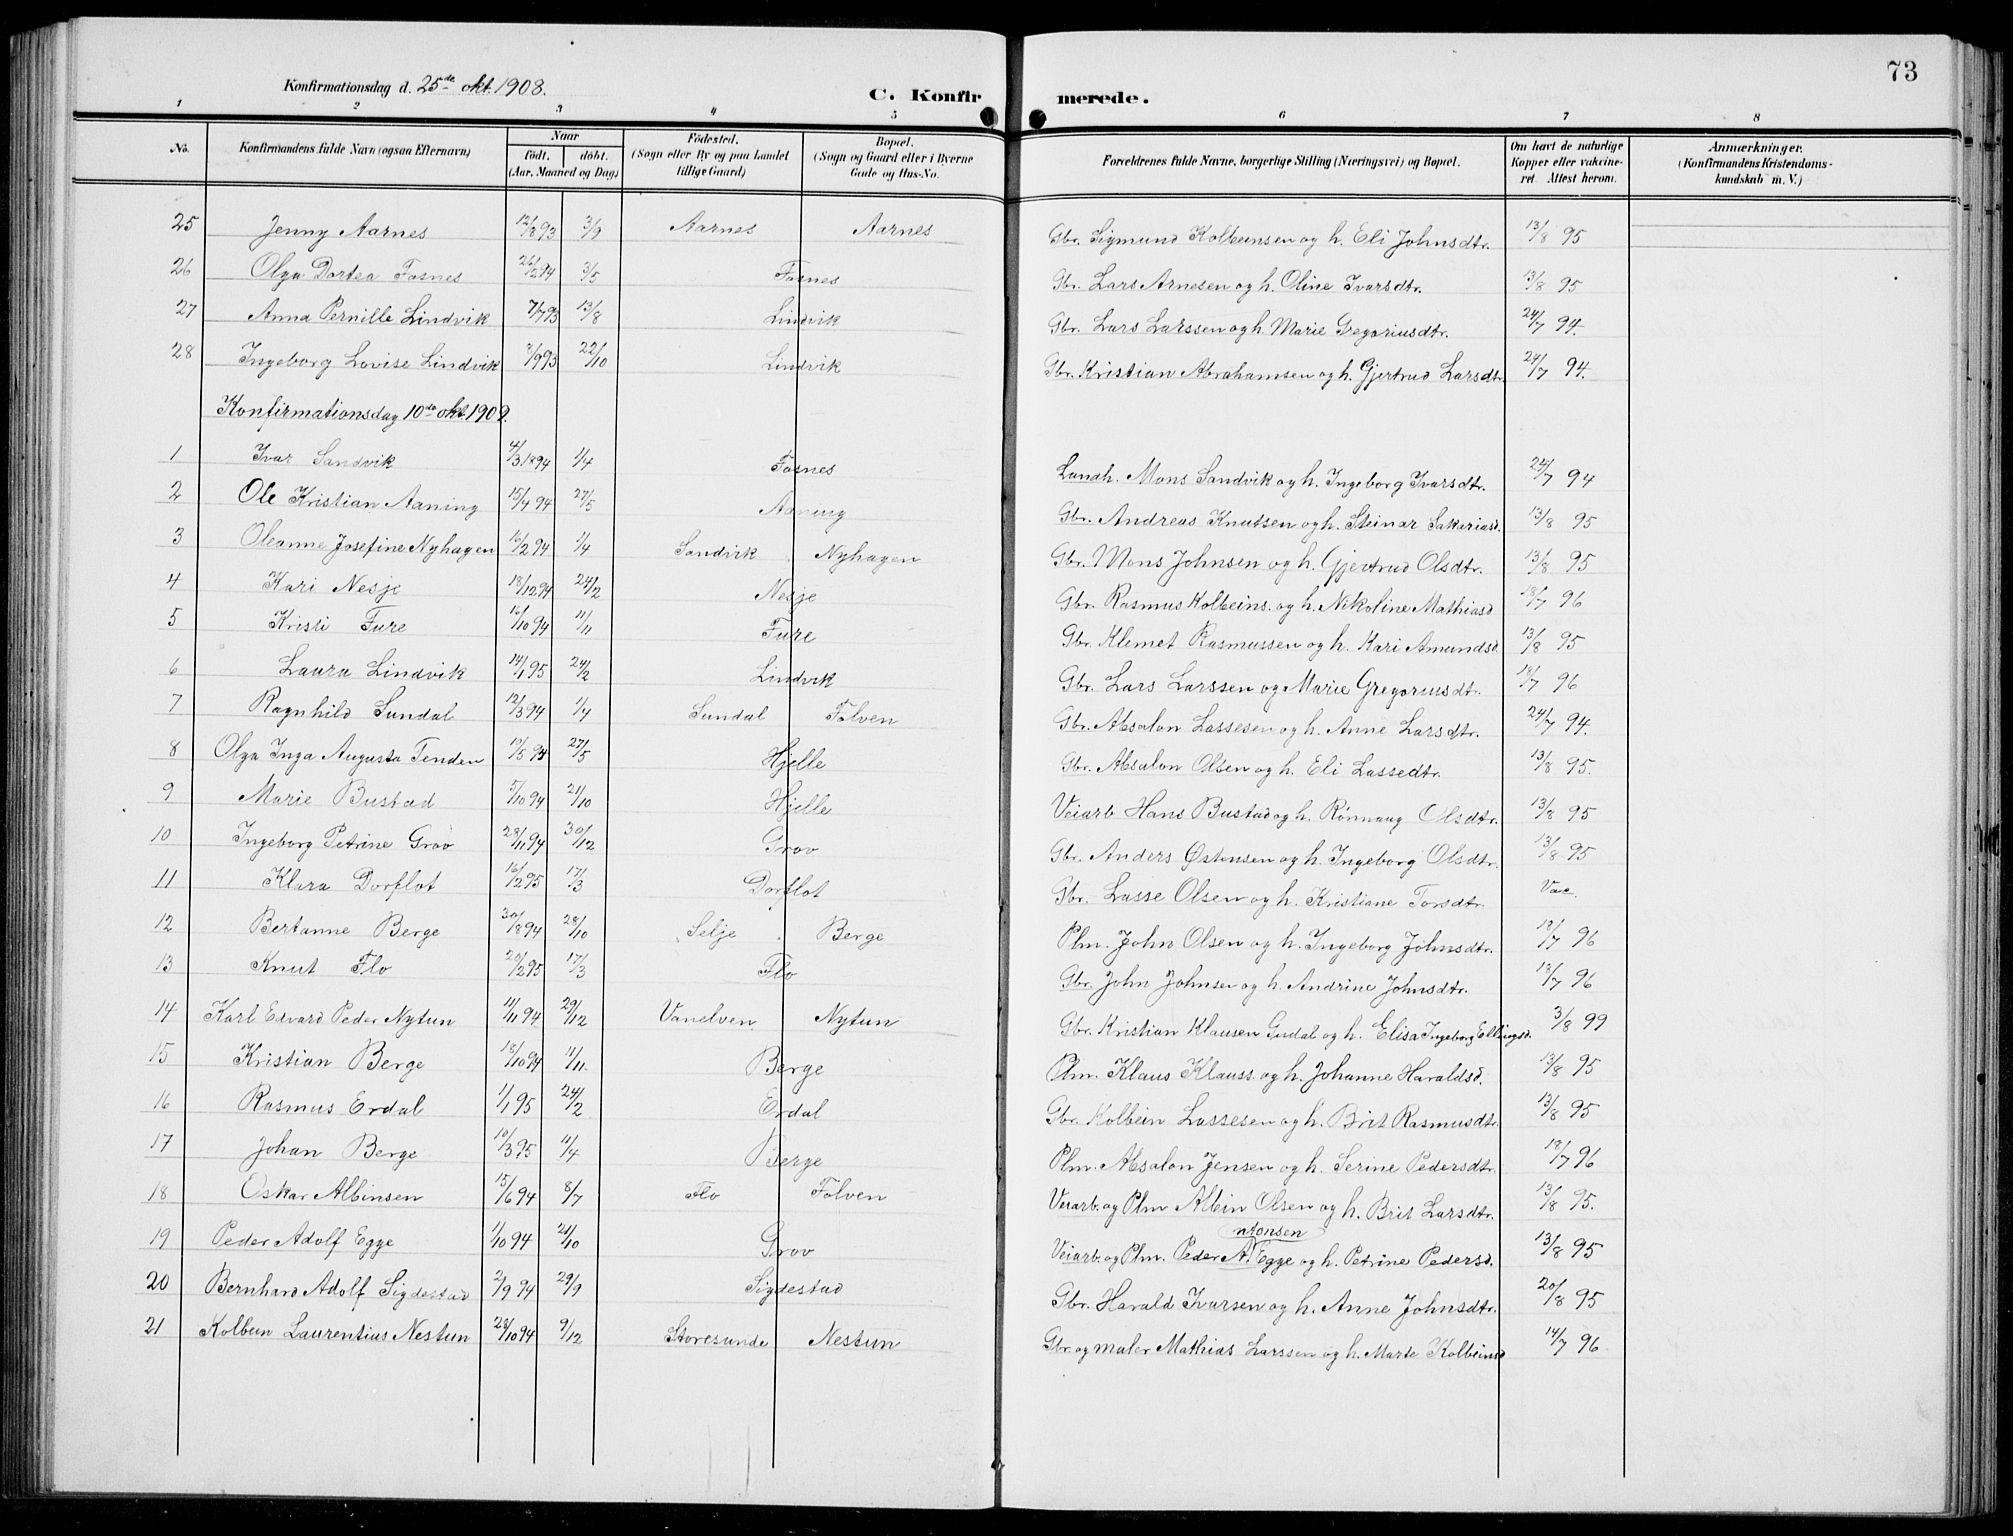 73
Konfirmationsdag d. 25de okt. 1908.
C. Konfirmerede.
1 2 3 4 5 6 7 8
No. | Konfirmandens fulde Navn (ogsaa Efternavn) | Naar født. døbt. (Aar, Maaned og Dag) | Födested. (Sogn eller By og paa Landet tillige Gaard) | Bopæl. (Sogn og Gaard eller i Byerne Gade og Hus-No. | Forældrenes fulde Navne, borgerlige Stilling (Næringsvei) og Bopæl. | Om havt de naturlige Kopper eller vakcineret. Attest herom. | Anmærkninger. (Konfirmandens Kristendomskundskab m. V.)
25 Jenny Aarnes 12/8 93 3/9 Aarnes Aarnes Gbr. Sigmund Kolbeinsen og h. Eli Johnsdtr. 13/8 95
26 Olga Dortea Fosnes 26/2 94 3/5 Fosnes Gbr. Lars Arnesen og h. Oline Ivarsdtr. 13/8 95
27 Anna Pernille Lindvik 7/7 93 13/8 Lindvik Gbr. Lars Larssen og h. Marie Gregoriusdtr. 24/7 94.
28 Ingeborg Lovise Lindvik 8/9 93 22/10 Lindvik Gbr. Kristian Abrahamsen og h. Gjertrud Larsdtr. 24/7 94.
Konfirmationsdag 10de okt. 1909.
1 Ivar Sandvik 4/3 1894 1/4 Fosnes Landh. Mons Sandvik og h. Ingeborg Ivarsdtr. 24/7 94
2 Ole Kristian Aaning 15/4 94 27/5 Aaning Gbr. Andreas Knutsen og h. Steinar Sakariasd. 13/8 95
3 Oleanne Josefine Nyhagen 16/2 94 1/4 Sandvik Nyhagen Gbr. Mons Johnsen og h. Gjertrud Olsdtr. 13/8 95
4 Kari Nesje 18/12 94 24/2 Nesje Gbr. Rasmus Kolbeins. og h. Nikoline Mathiasd 18/7 96
5 Kristi Fure 16/10 94 11/11 Fure Gbr. Klemet Rasmussen og h. Kari Amundsd. 13/8 95
6 Laura Lindvik 14/1 95 24/2 Lindvik Gbr. Lars Larssen og Marie Gregoriusdtr. 18/7 96
7 Ragnhild Sundal 12/3 94 1/4 Sundal Folven Gbr. Absalon Lassesen og h. Anne Larsdtr. 24/7 94.
8 Olga Inga Augusta Tenden 10/5 94 27/5 Hjelle Gbr. Absalon Olsen og h. Eli Lassedtr. 13/8 95.
9 Marie Bustad 5/10 94 21/10 Hjelle Veiarb Hans Bustad og h. Rønnaug Olsdtr. 13/8 95
10 Ingeborg Petrine Grov 28/11 94 30/12 Grov Gbr. Anders Østensen og h. Ingeborg Olsdtr. 13/8 95
11 Klara Dorflot 16/2 95 17/3 Dorflot Gbr. Lasse Olsen og h. Kristiane Torsdtr. Vac.
12 Bertanne Berge 30/8 94 28/10 Selje Berge Plm. John Olsen og h. Ingeborg Johnsdtr. 18/7 96
13 Knut Flo 20/2 95 17/3 Flo Gbr. John Johnsen og h. Andrine Johnsdtr. 18/7 96
14 Karl Edvard Peder Nytun 11/11 94 29/12 Vanelven Nytun Gbr. Kristian Klausen Gudal og h. Elisa Ingeborg Ellingsd. 3/8 99
15 Kristian Berge 18/10 94 11/11. Berge Plm. Klaus Klauss. og h. Johanne Haraldsd. 13/8 95
16 Rasmus Erdal 1/1 95 24/2 Erdal Gbr. Kolbein Lassesen og h. Brit Rasmusdtr. 13/8 95
17 Johan Berge 10/3 95 11/4 Berge Plm. Absalon Jensen og h. Serine Pedersdtr. 18/7 96
18 Oskar Albinsen 15/6 94 8/7 Flo Folven Veiarb. og Plm Albin Olsen og h. Brit Larsdtr. 13/8 95.
19 Peder Adolf Egge 1/10 94 21/10 Grov Veiarb og Plm. Peder Antonsen Egge og h. Petrine Pedersd. 13/8 95
20 Bernhard Adolf Sigdestad 2/9 94 29/9 Sigdestad Gbr. Harald Ivarsen og h. Anne Johnsdtr. 20/8 95
21 Kolbein Laurentius Nestun 28/10 94 9/12 Storesunde Nestun Gbr. og maler Mathias Larssen og h. Marte Kolbeinsd 14/7 96